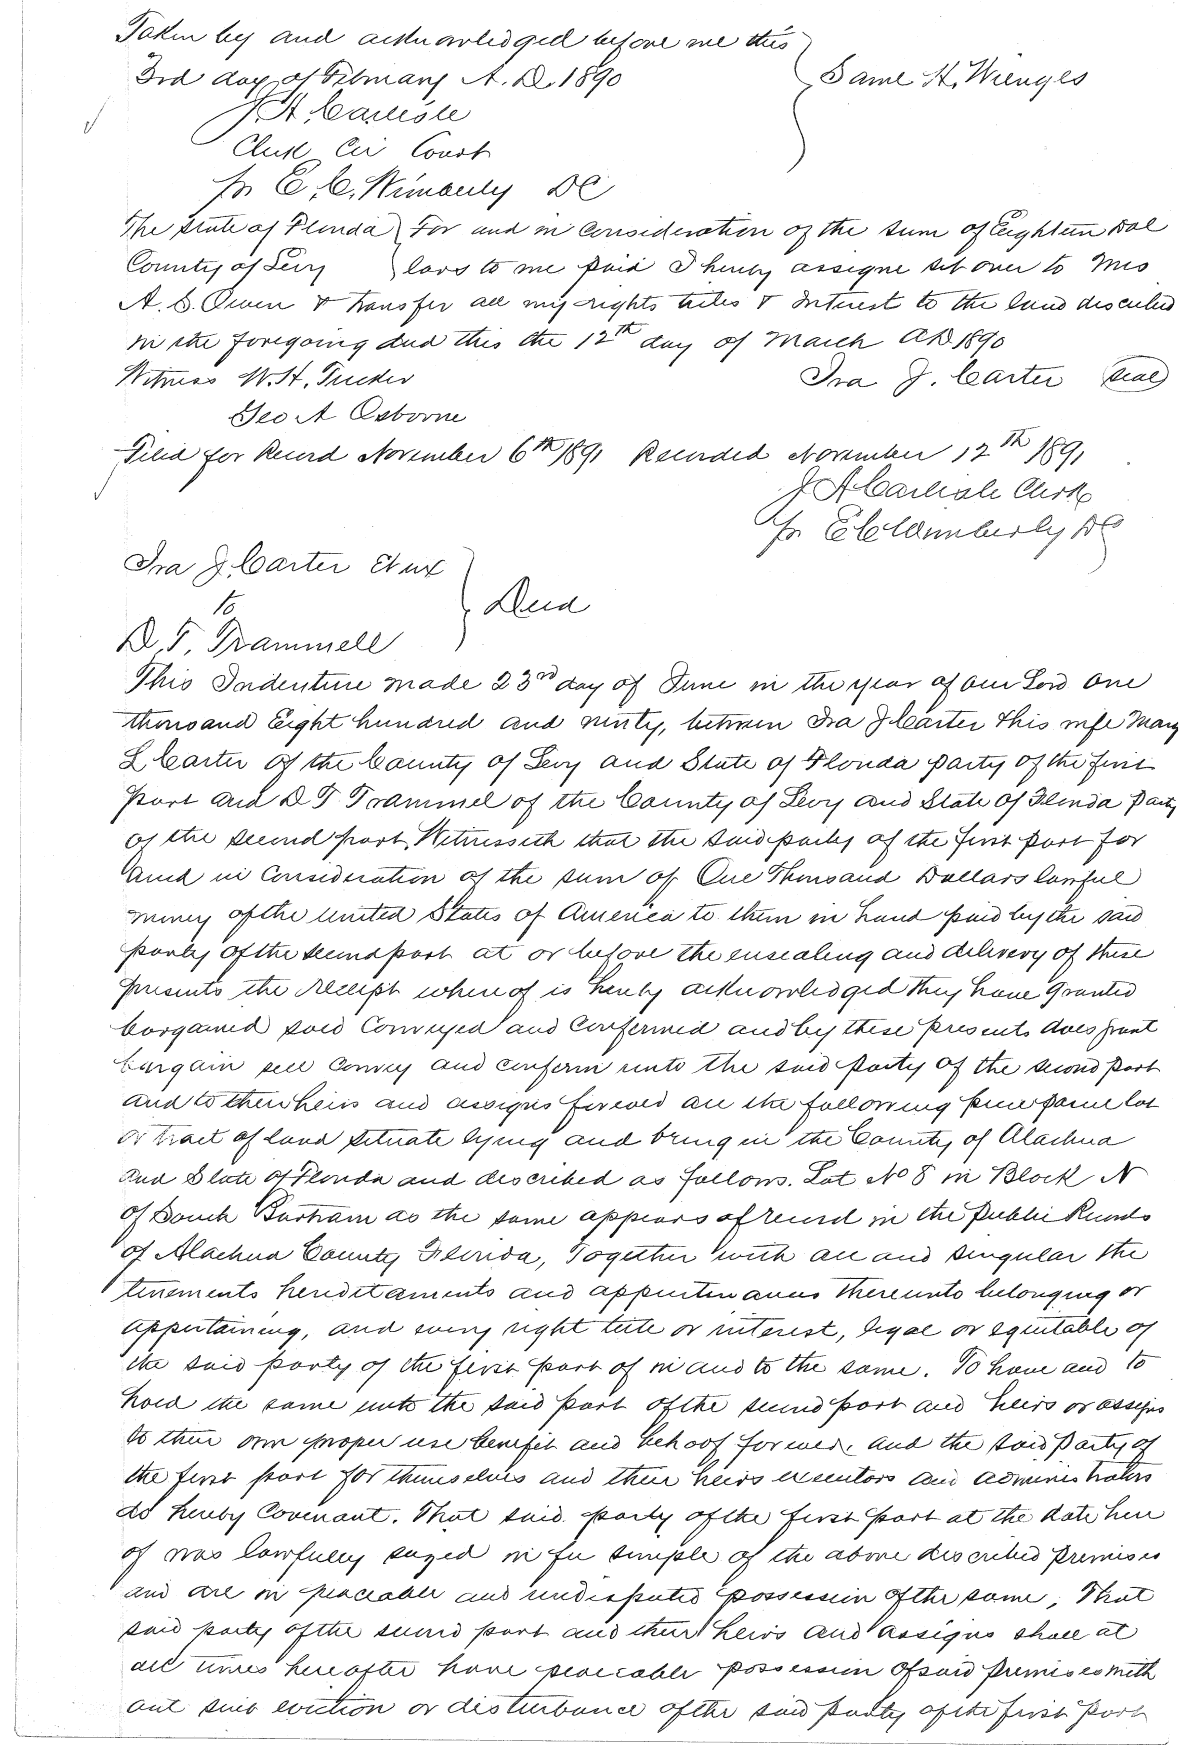 Taken by and acknowledged before me this
3rd day of February A. D. 1890 Same H. Wienges
J A Carlisle
Clerk Cir Court
pr E. C. Wimberly DC
The State of Florida } For and in consideration of the sum of Eighteen Dol
County of Levy } lars to me paid I hereby assigne set over to Mrs
A. S. Owen & transfer all my rights titles & interest to the land described
in the foregoing deed this the 12th day of March AD 1890
Witness W. H. Tucker Ira J. Carter (seal)
Geo A Osborne
Filed for Record November 6th 1891 Recorded November 12th 1891
J A Carlisle Clerk
pr E C Wimberly DC
Ira J. Carter et ux
to } Deed
D. T. Trammell
This Indenture made 23rd day of June in the year of our Lord One
thousand Eight hundred and ninty, between Ira J Carter & his wife Mary
L Carter of the County of Levy and State of Florida party of the first
Part and D T Trammel of the County of Levy and State of Florida Party
of the second part, Witnesseth that the said party of the first part for
and in Consideration of the sum of One Thousand Dollars lawful
money of the United States of America to them in hand paid by the said
party of the second part at or before the ensealing and delivery of these
presents the receipt where of is hereby acknowledged they have granted
bargained sold Conveyed and Confirmed and by these presents does grant
bargain sell Convey and confirm unto the said Party of the second part
and to their heirs and assigns forever all the following piece parcel lot
or tract of land situate lying and being in the County of Alachua
and State of Florida and described as follows. Lot No 8 in Block N
of South as the same appears of record in the Public Records
of Alachua County Florida, Together with all and singular the
tenements hereditaments and appurtenances thereunto belonging or
appertaining, and every right title or interest, legal or equitable of
the said party of the first part of in and to the same. To have and to
hold the same unto the said part of the second part and heirs or assigns
to their own proper use benefit and behoof forever. And the said Party of
the first part for themselves and their heirs executors and administrators
do hereby Covenant. That said party of the first part at the date here
of was lawfully seized in fee simple of the above described premises
and are in peaceable and undisputed possession of the same; That
said party of the second part and their heirs and assigns shall at
all times hereafter have peaceable possession of said premises with
out suit eviction or disturbance of the said party of the first part